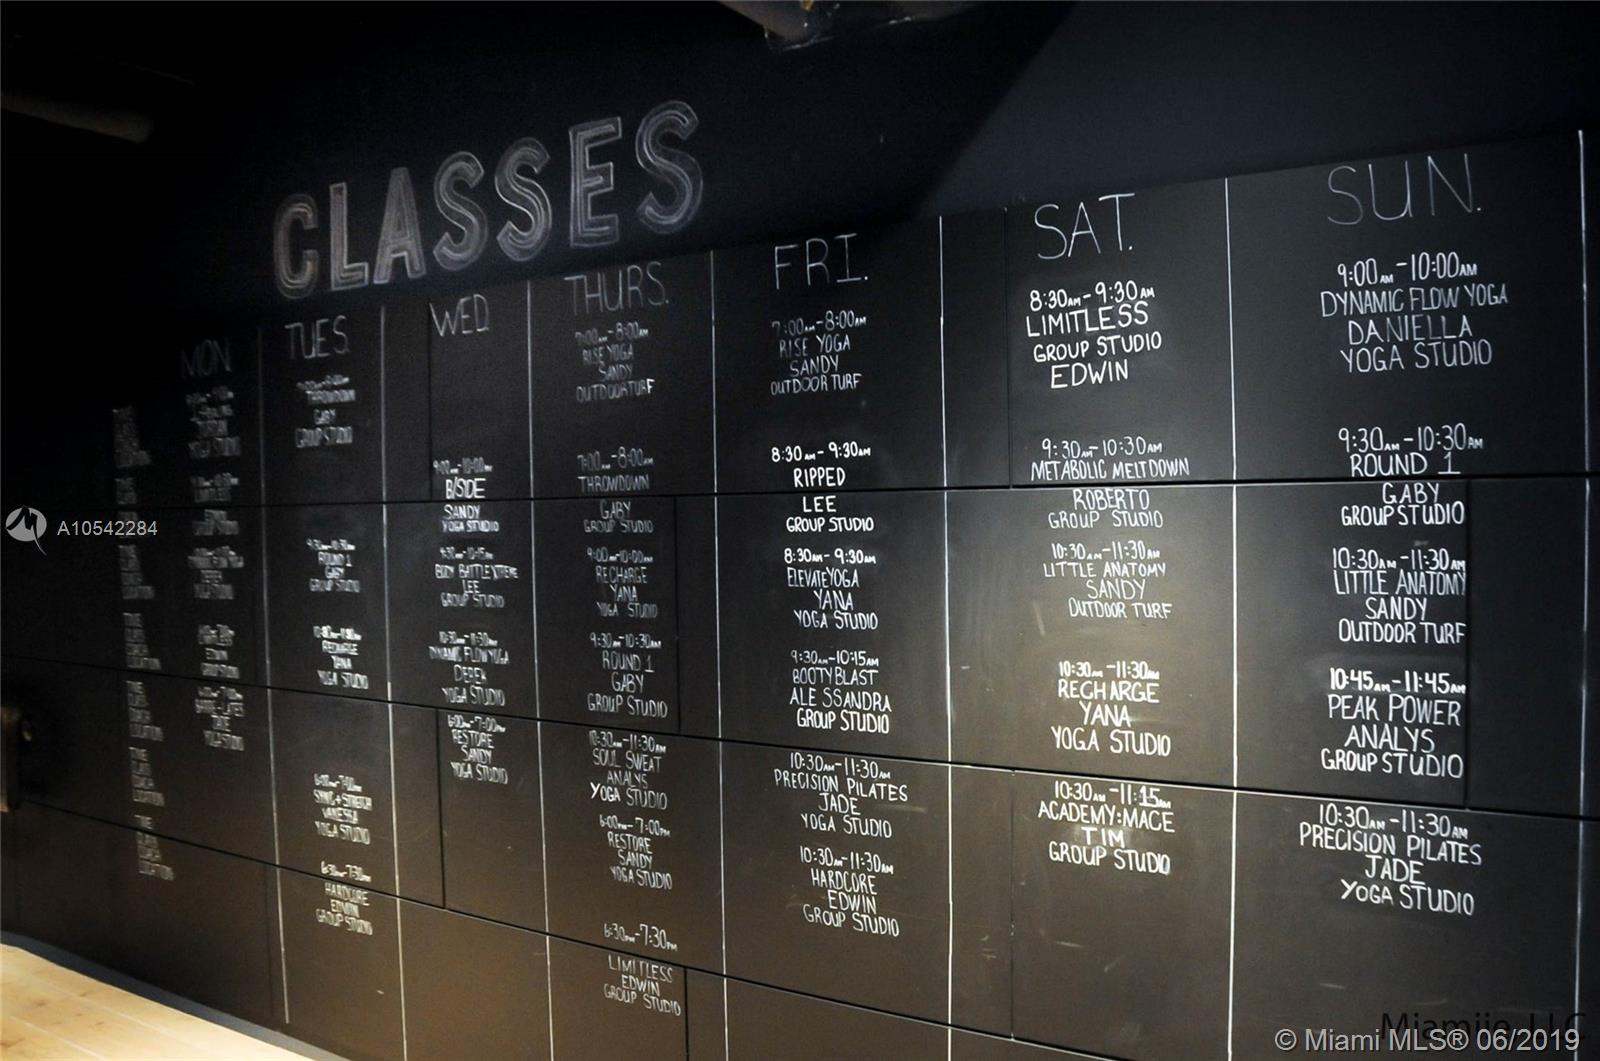 CLASSES
MON
TIME
CLASS
COACH
LOCATION
TIME
CLASS
COACH
LOCATION
TIME
CLASS
COACH
LOCATION
YOGA STUDIO
EDWIN
GROUP STUDIO
DEREK
YOGA STUDIO
EDWIN
GROUP STUDIO
JADE
YOGA STUDIO
TUES.
THROWDOWN
GABY
GROUP STUDIO
9:30AM-10:30AM
ROUND 1
GABY
GROUP STUDIO
RECHARGE
YANA
YOGA STUDIO
6:00PM-7:00PM
SYNC+STRETCH
VANESSA
YOGA STUDIO
6:30PM-7:30PM
HARDCORE
EDWIN
GROUP STUDIO
WED.
9:00AM-10:00AM
B/SIDE
SANDY
YOGA STUDIO
9:30AM-10:15AM
BODY BATTLE XTREME
LEE
GROUP STUDIO
10:30AM-11:30AM
DYNAMIC FLOW YOGA
DEREK
YOGA STUDIO
6:00PM-7:00PM
RESTORE
SANDY
YOGA STUDIO
THURS.
7:00AM-8:00AM
RISE YOGA
SANDY
OUTDOOR TURF
7:00AM-8:00AM
THROWDOWN
GABY
GROUP STUDIO
9:00AM-10:00AM
RECHARGE
YANA
YOGA STUDIO
9:30AM-10:30AM
ROUND 1
GABY
GROUP STUDIO
10:30AM-11:30AM
SOUL SWEAT
ANALYS
YOGA STUDIO
6:00PM-7:00PM
RESTORE
SANDY
YOGA STUDIO
6:30PM-7:30PM
LIMITLESS
EDWIN
GROUP STUDIO
FRI.
7:00AM-8:00AM
RISE YOGA
SANDY
OUTDOOR TURF
8:30AM-9:30AM
RIPPED
LEE
GROUP STUDIO
8:30AM-9:30AM
ELEVATE YOGA
YANA
YOGA STUDIO
9:30AM-10:15AM
BOOTY BLAST
ALESSANDRA
GROUP STUDIO
10:30AM-11:30AM
PRECISION PILATES
JADE
YOGA STUDIO
10:30AM-11:30AM
HARDCORE
EDWIN
GROUP STUDIO
SAT.
8:30AM-9:30AM
LIMITLESS
GROUP STUDIO
EDWIN
9:30AM-10:30AM
METABOLIC MELTDOWN
ROBERTO
GROUP STUDIO
10:30AM-11:30AM
LITTLE ANATOMY
SANDY
OUTDOOR TURF
10:30AM-11:30AM
RECHARGE
YANA
YOGA STUDIO
10:30AM-11:15AM
ACADEMY:MACE
TIM
GROUP STUDIO
SUN.
9:00AM-10:00AM
DYNAMIC FLOW YOGA
DANIELLA
YOGA STUDIO
9:30AM-10:30AM
ROUND 1
GABY
GROUP STUDIO
10:30AM-11:30AM
LITTLE ANATOMY
SANDY
OUTDOOR TURF
10:45AM-11:45AM
PEAK POWER
ANALYS
GROUP STUDIO
10:30AM-11:30AM
PRECISION PILATES
JADE
YOGA STUDIO
A10542284
Miamiie LLC
© Miami MLS® 06/2019